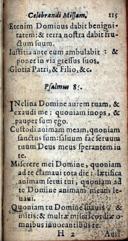 Celebrandi Missam. 115
Etenim Dominus dabit benigni-
tatem: & terra nostra dabit fru-
ctum suum.
Iustitia ante eum ambulabit: &
ponet in via gressus suos.
Gloria Patri, & Filio, &c.
Psalmus 85.
INclina Domine aurem tuam, &
exaudi me: quoniam inops, &
pauper sum ego.
Custodi animam meam, quoniam
sanctus sum: saluum fac seruum
tuum Deus meus sperantem in
te.
Miserere mei Domine, quoniam
ad te clamaui tota die: lætifica
animam serui tui, quoniam ad
te Domine animam meam le-
uaui.
Quoniam tu Domine suauis, &
mitis: & multæ misericordiæ o-
mnibus inuocantibus te.
H 2